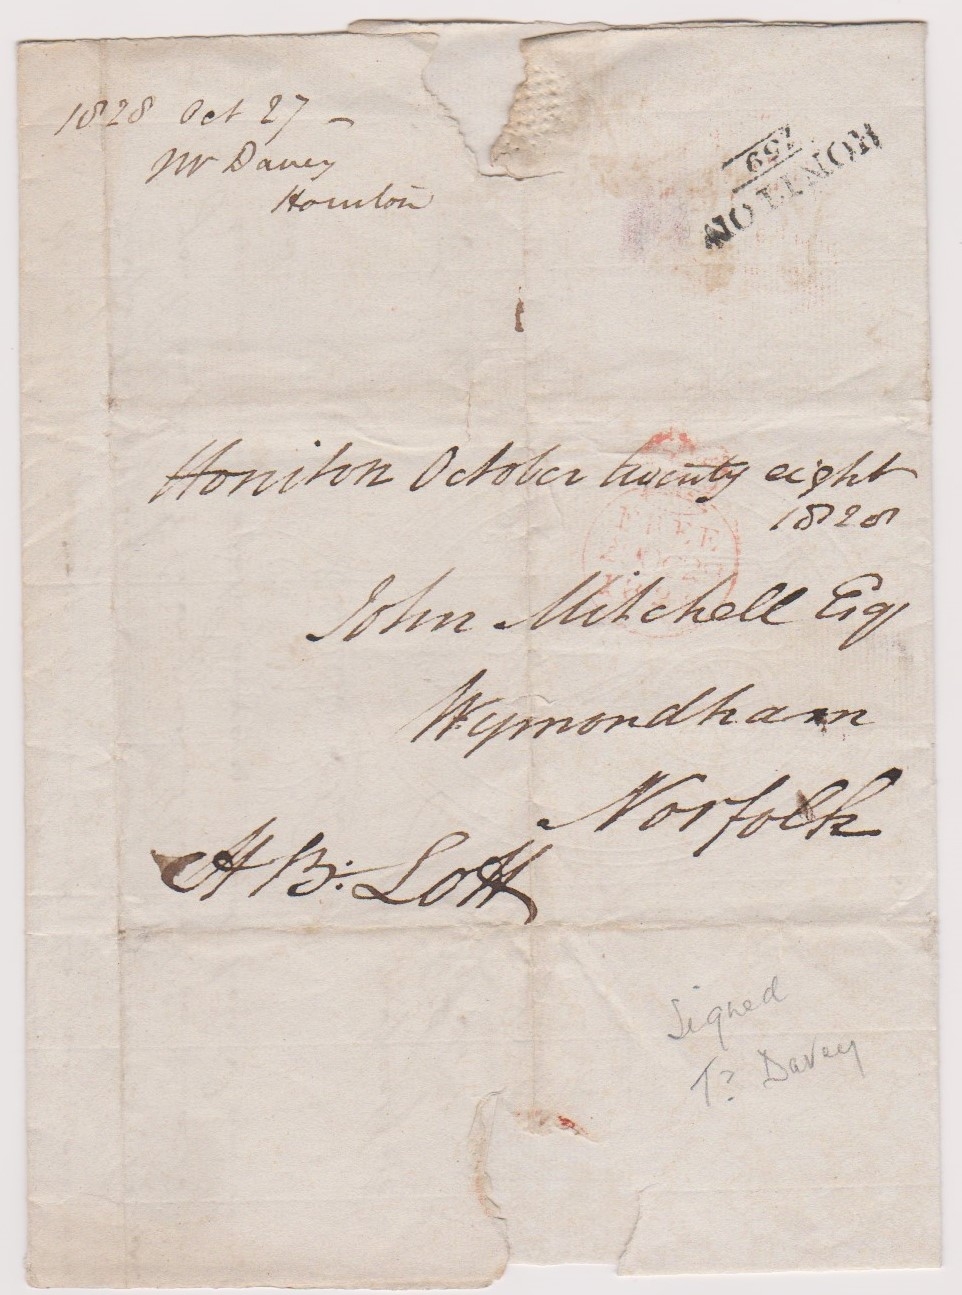 1828 Oct 27 –
Mr Davey
Honiton
HONITON
Honiton October twenty eight
1828
FREE
John Mitchell Esq
Wymondham
Norfolk
H B: Lott
Signed
T? Davey